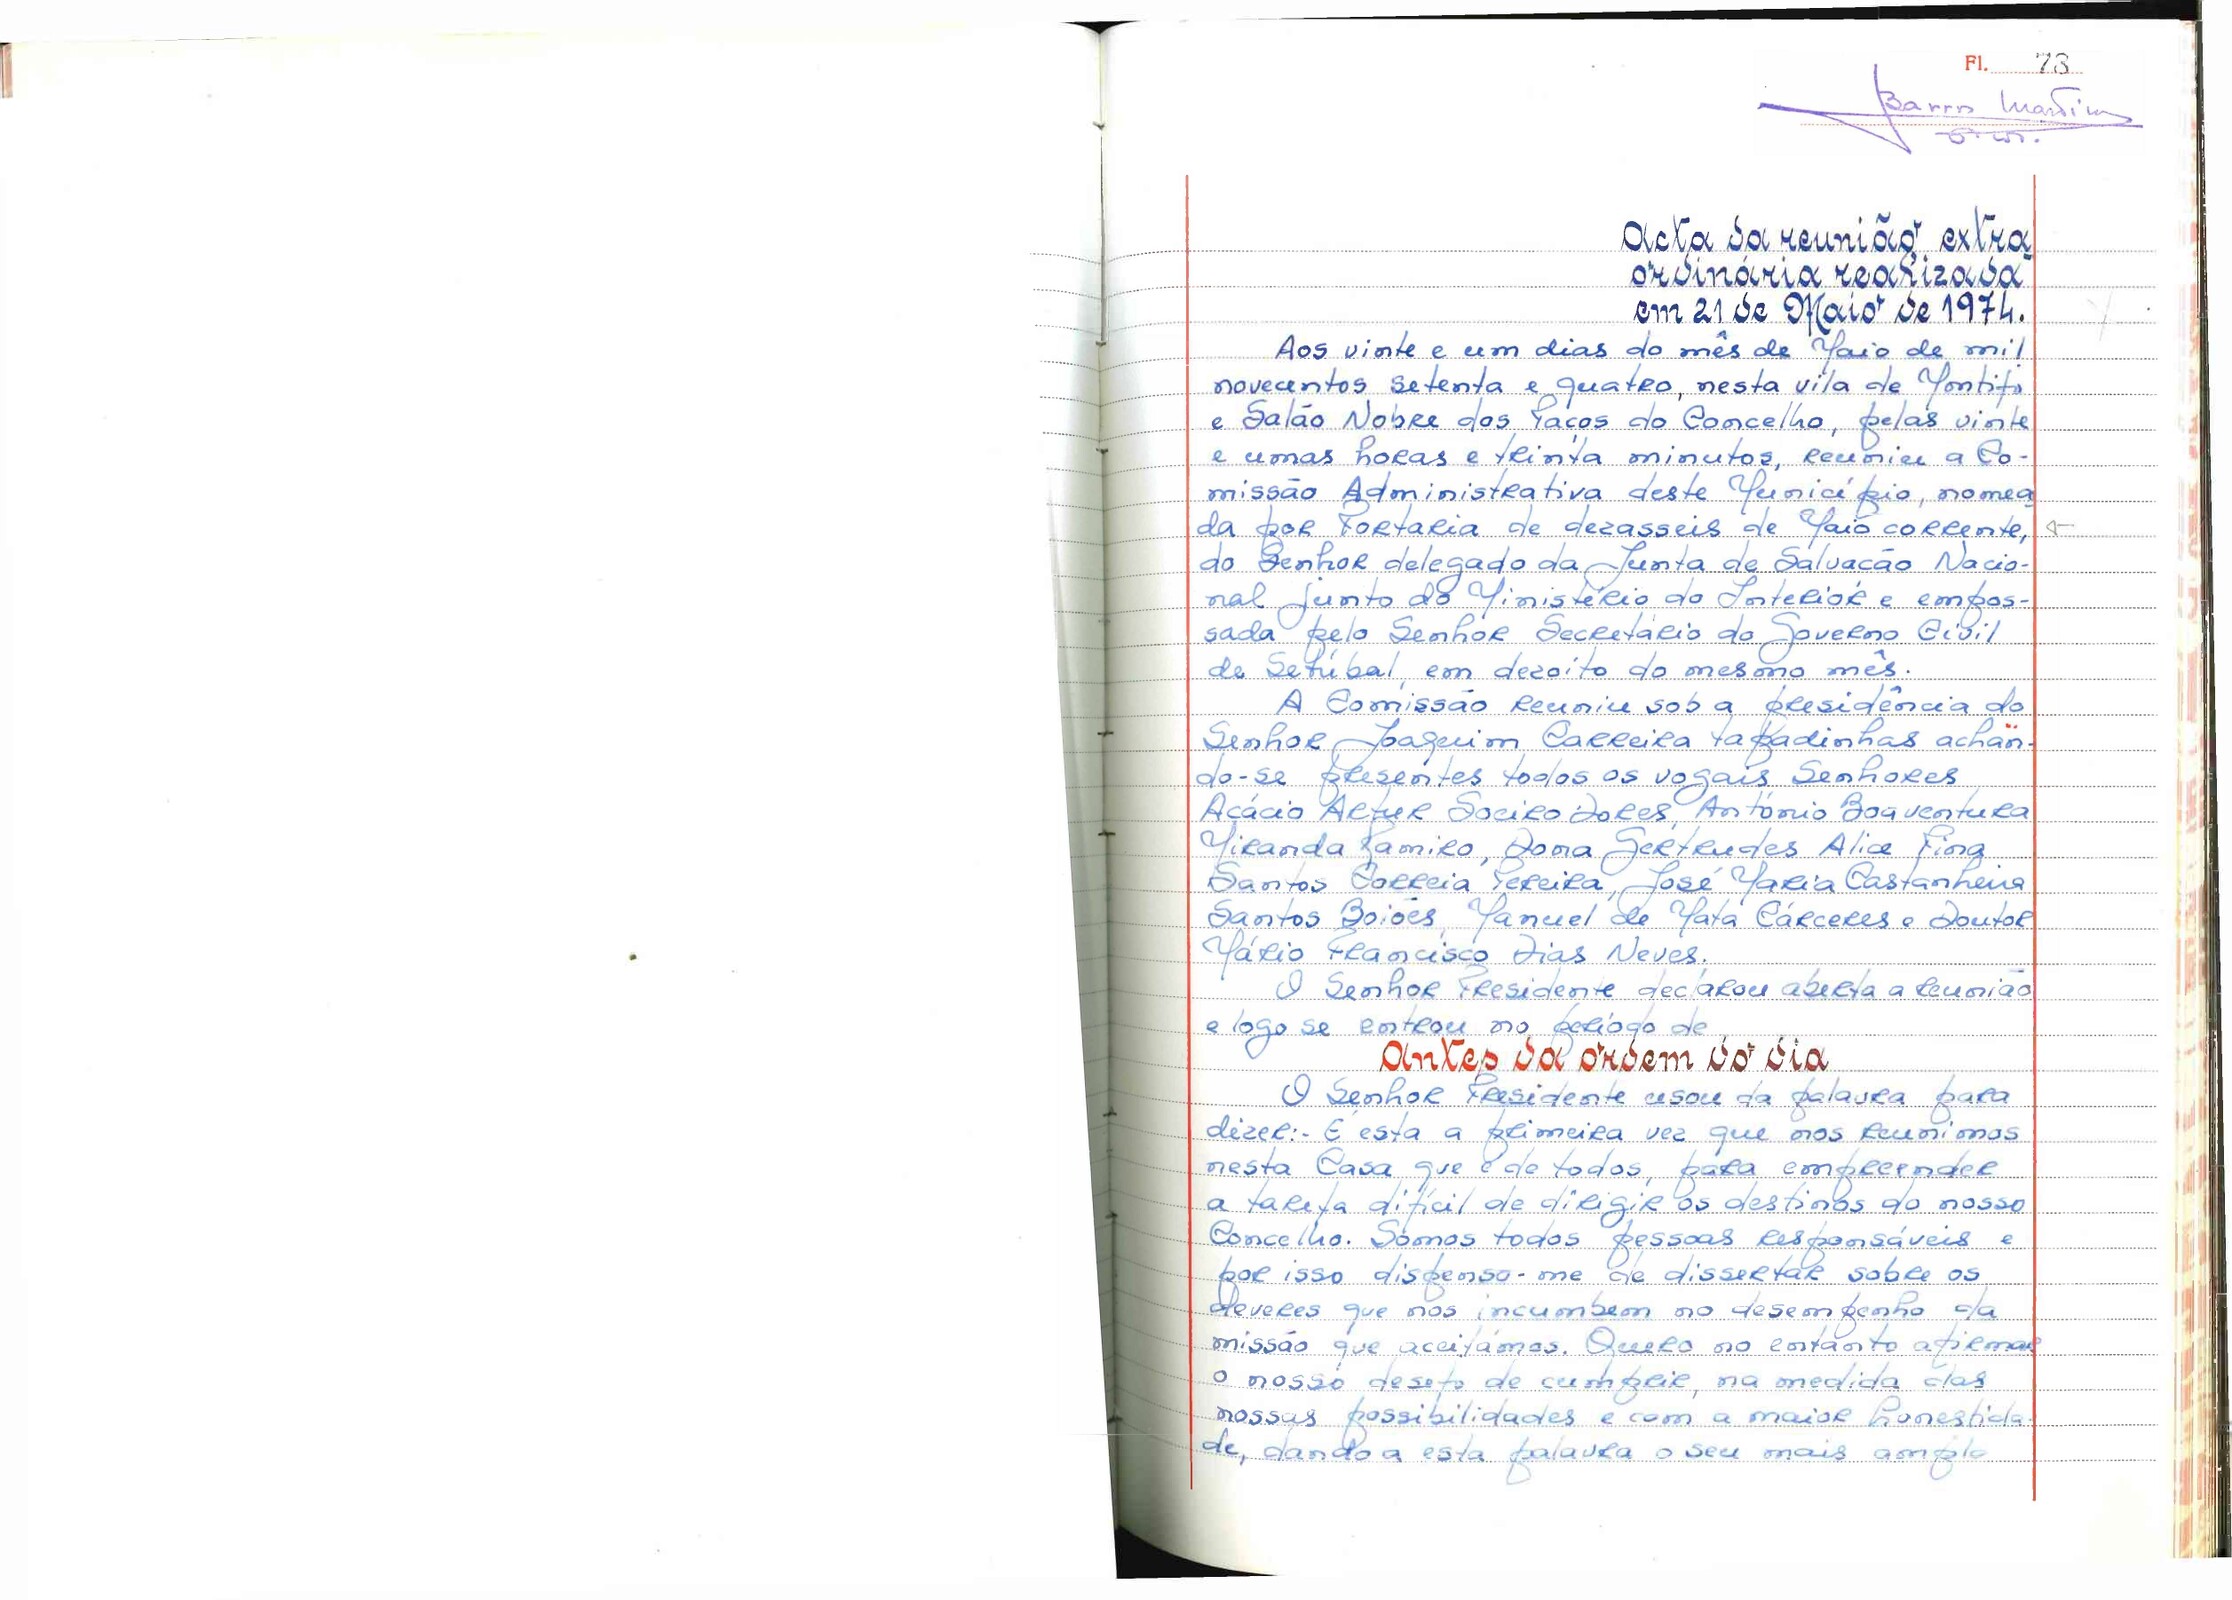 Fl. 73
Barros Martins
Acta da reunião extra
ordinária realizada
em 21 de Maio de 1974.
Aos vinte e um dias do mês de Maio de mil
novecentos setenta e quatro, nesta vila de Montijo
e Salão Nobre dos Paços do Concelho, pelas vinte
e umas horas e trinta minutos, reuniu a Co-
missão Administrativa deste Município, nomea
da por Portaria de dezasseis de Maio corrente,
do Senhor delegado da Junta de Salvação Nacio-
nal junto do Ministério do Interior e empos-
sada pelo Senhor Secretário do Governo Civil
de Setúbal, em dezoito do mesmo mês.
A Comissão reuniu sob a presidência do
Senhor Joaquim Carreira Tapadinhas achan-
do-se presentes todos os vogais Senhores
Acácio Artur Soeiro Dores, António Boaventura
Miranda Ramiro, Dona Gertrudes Alice Pina
Santos Correia Pereira, José Maria Castanheira
Santos Boiões, Manuel de Mata Cárceres e Doutor
Mário Francisco Dias Neves.
O Senhor Presidente declarou aberta a reunião
e logo se entrou no período de
Antes da ordem do dia
O Senhor Presidente usou da palavra para
dizer:- É esta a primeira vez que nos reunimos
nesta Casa que é de todos, para empreender
a tarefa difícil de dirigir os destinos do nosso
Concelho. Somos todos pessoas responsáveis e
por isso dispenso-me de dissertar sobre os
deveres que nos incumbem no desempenho da
missão que aceitámos. Quero no entanto afirmar
o nosso desejo de cumprir, na medida das
nossas possibilidades e com a maior honestida-
de, dando a esta palavra o seu mais amplo